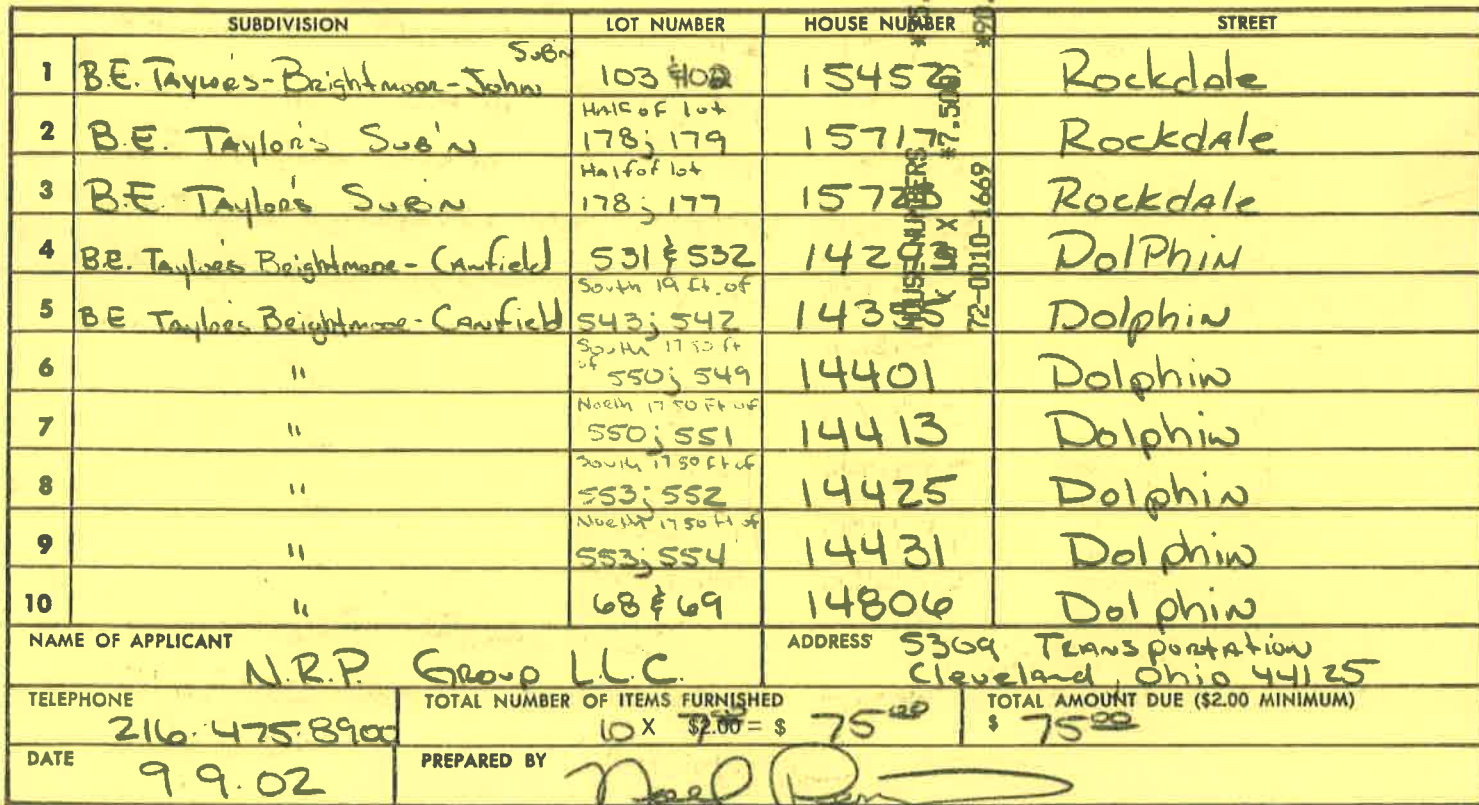 SUBDIVISION LOT NUMBER HOUSE NUMBER STREET
Sub'n
1 B.E. Taylor's-Brightmoor-John 103 & 102 15452 Rockdale
Half of lot
2 B.E. Taylor's Sub'n 178; 179 15717 Rockdale
Half of lot
3 B.E. Taylor's Sub'n 178; 177 15723 Rockdale
4 B.E. Taylor's Brightmoor-Canfield 531 & 532 14293 DolPhin
South 19 ft. of
5 BE Taylors Brightmoor-Canfield 543; 542 14355 Dolphin
South 17 50 ft
6 " of 550; 549 14401 Dolphin
North 17 50 Ft of
7 " 550; 551 14413 Dolphin
South 17 50 ft of
8 " 553; 552 14425 Dolphin
North 17 50 ft of
9 " 553; 554 14431 Dolphin
10 " 68 & 69 14806 Dolphin
HOUSE NUMBERS
X *7.500
72-0010-1669
NAME OF APPLICANT N.R.P. Group L.L.C.
ADDRESS 5309 Transportation
Cleveland, Ohio 44125
TELEPHONE 216.475.8900
TOTAL NUMBER OF ITEMS FURNISHED
10 X $2.00 7.50 = $ 75 00
TOTAL AMOUNT DUE ($2.00 MINIMUM)
$ 75 00
DATE 9 9.02
PREPARED BY